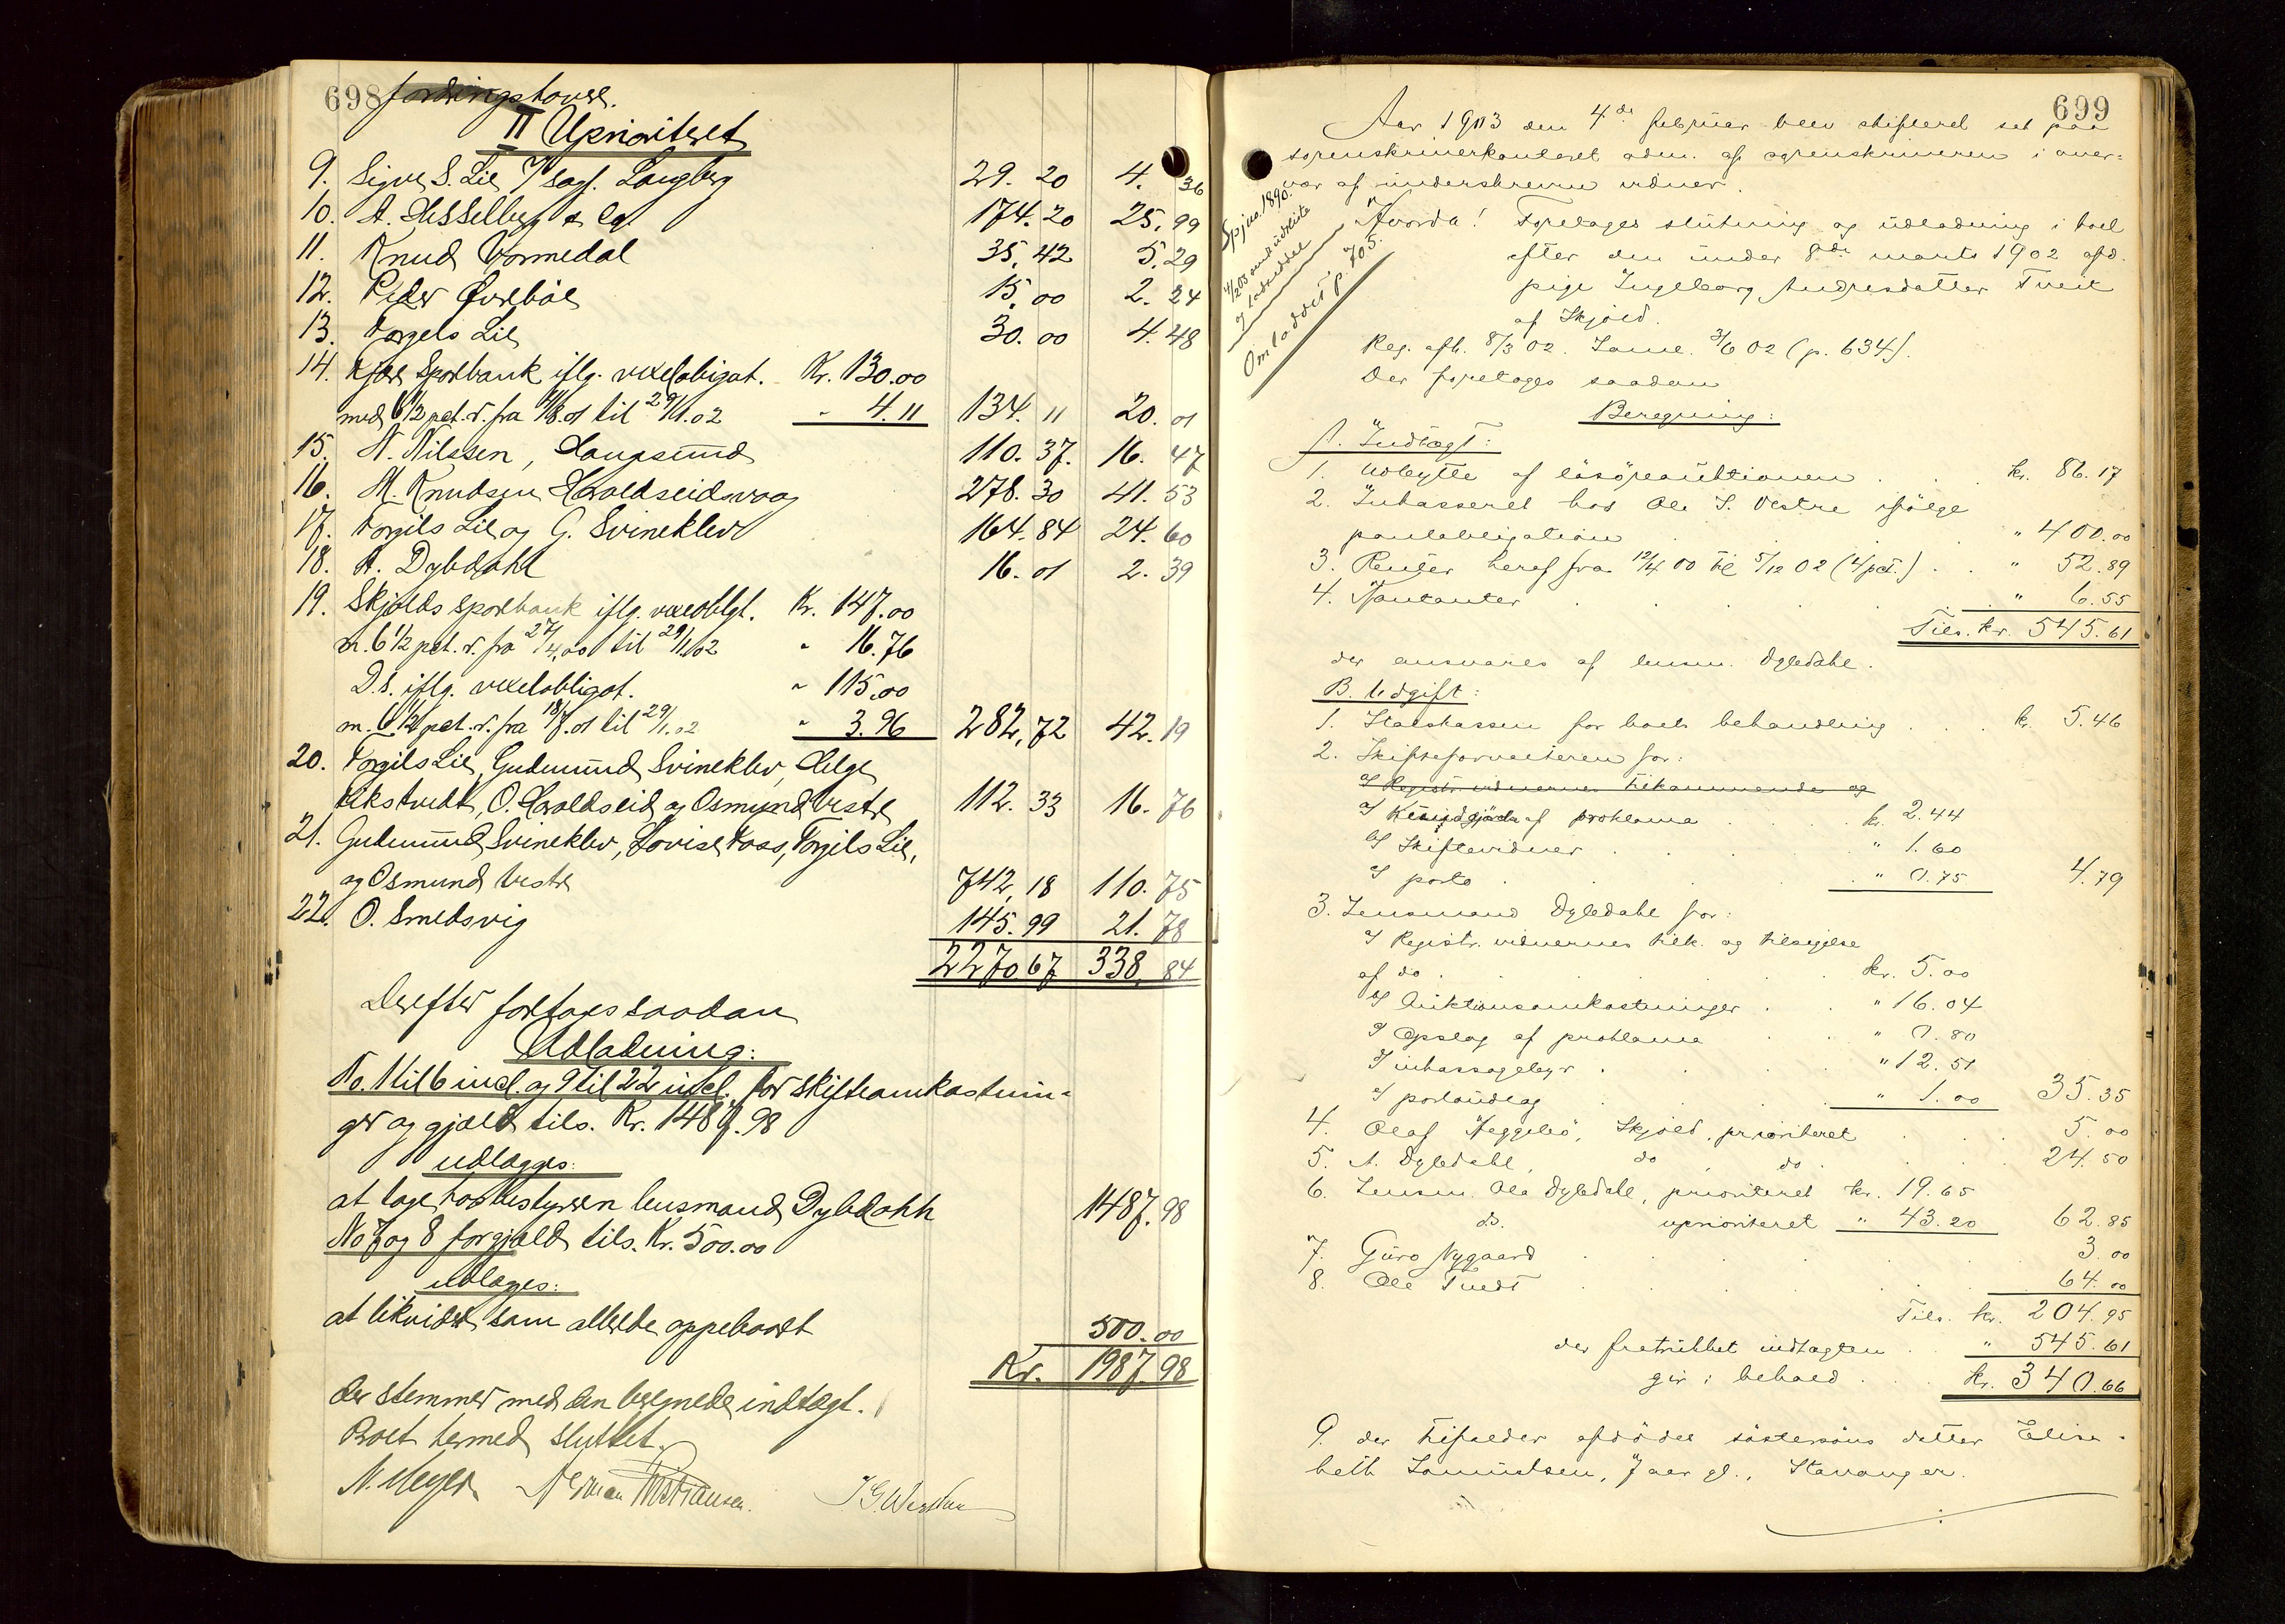 698 fordringshaver.
II Uprioriteret
9. Sigve S. Lie v/ sagf. Langberg 29.20 4.36
10. A. Hesselberg & Co. 174.20 25.99
11. Knud Vormedal 35.42 5.29
12. Peder Øvrebøe 15.00 2.24
13. Torgils Lie 30.00 4.48
14. Skjold Sparebank iflg. vexelobligat. Kr. 130.00
med 6 1/2 pct. r. fra til 29/1.02 " 4.11 134.11 20.01
15. N. Nilssen, Haugesund 110.37. 16.47
16. M. Knudsen Haraldseidsvaag 278.30 41.53
17. Torgils Lie og G. Svineklev 164.84 24.60
18. A. Dybdahl 16.01 2.39
19. Skjolds Sparebank iflg. vexelobligt. Kr. 147.00
m. 6 1/2 pct. r. fra 27/4.00 til 29/1.02 " 16.76
D.s. iflg. vexelobligat. " 115.00
m. 6 1/2 pct. r. fra 18/7.01 til 29/1.02 " 3.96 282.72 42.19
20. Torgils Lie, Gudmund Svineklev, Helge
Liekstvedt, O. Haraldseid og Osmund Vestre 112.33 16.76
21. Gudmund Svineklev, Lovise Voss, Torgils Lie,
og Osmund Vestre 742.18 110.75
22. O. Smedsvig 145.99 21.78
2270.67 338.84
Derefter foretages saadan
Udlodning:
No. 1 til 6 incl. og 9 til 22 incl. for skifteomkostnin-
ger og gjæld tils. Kr. 1487.98
udlægges:
at tage hos bestyreren lensmand Dybdahl 1487.98
No 7 og 8 for gjæld tils. Kr. 500.00
udlægges:
at likvidere som allerede oppebaaret 500.00
Kr. 1987.98
der stemmer med den beregnede indtægt.
Boet hermed sluttet.
N. Meyer Herman Kristiansen. J G Westbøe
699
Aar 1903 den 4de februar blev skifteret sat paa
sorenskriverkontoret adm. af sorenskriveren i over-
vær af underskrevne vidner.
Spjno. 1890.
4/2 03 sendt udskrift
af lodseddel
Omloddet p. 705.
Hvorda! Foretages slutning og udlodning i boet
efter den under 8de marts 1902 afd.
pige Ingeborg Andresdatter Tveit
af Skjold.
Reg. afh. 8/3 02. Saml. 3/6 02 (p. 634).
Der foretages saadan
Beregning:
A. Indtægt:
1. Udbytte af løsøreauktionen . . kr. 86.17
2. Inkasseret hos Ole S. Vestre ifølge
pantobligation . . " 400.00
3. Renter heraf fra 12/4 00 til 5/12 02 (4 pct.) . . " 52.89
4. Kontanter . . " 6.55
Tils. kr. 545.61
der ansvares af lensm. Dybdahl.
B. Udgift:
1. Statskassen for boets behandling . . kr. 5.46
2. Skifteforvalteren for:
a/ Registr. vidnernes tilkommende og
a/ Kundgjørelse af proklama . . kr. 2.44
b/ Skiftevidner . . " 1.60
c/ porto . . " 0.75 4.79
3. Lensmand Dybdahl for:
a/ Registr. vidnernes tilk. og tilsigelse
af do . . kr. 5.00
b/ Auktionsomkostninger . . " 16.04
c/ Opslag af proklama . . " 0.80
d/ inkassogebyr . . " 12.51
e/ portoudlæg . . " 1.00 35.35
4. Olaf Heggebø, Skjold, prioriteret . . 5.00
5. A. Dybdahl, do , do . . 24.50
6. Lensm. Ole Dybdahl, prioriteret kr. 19.65
ds. uprioriteret " 43.20 62.85
7. Guro Nygaard . . 3.00
8. Ole Tvedt . . 64.00
Tils. kr. 204.95
der fratrukket indtægten . " 545.61
gir i behold . . kr. 340.66
9. der tilfalder afdødes søstersøns datter Elisa-
beth Samuelsen, 7 aar gl., Stavanger.